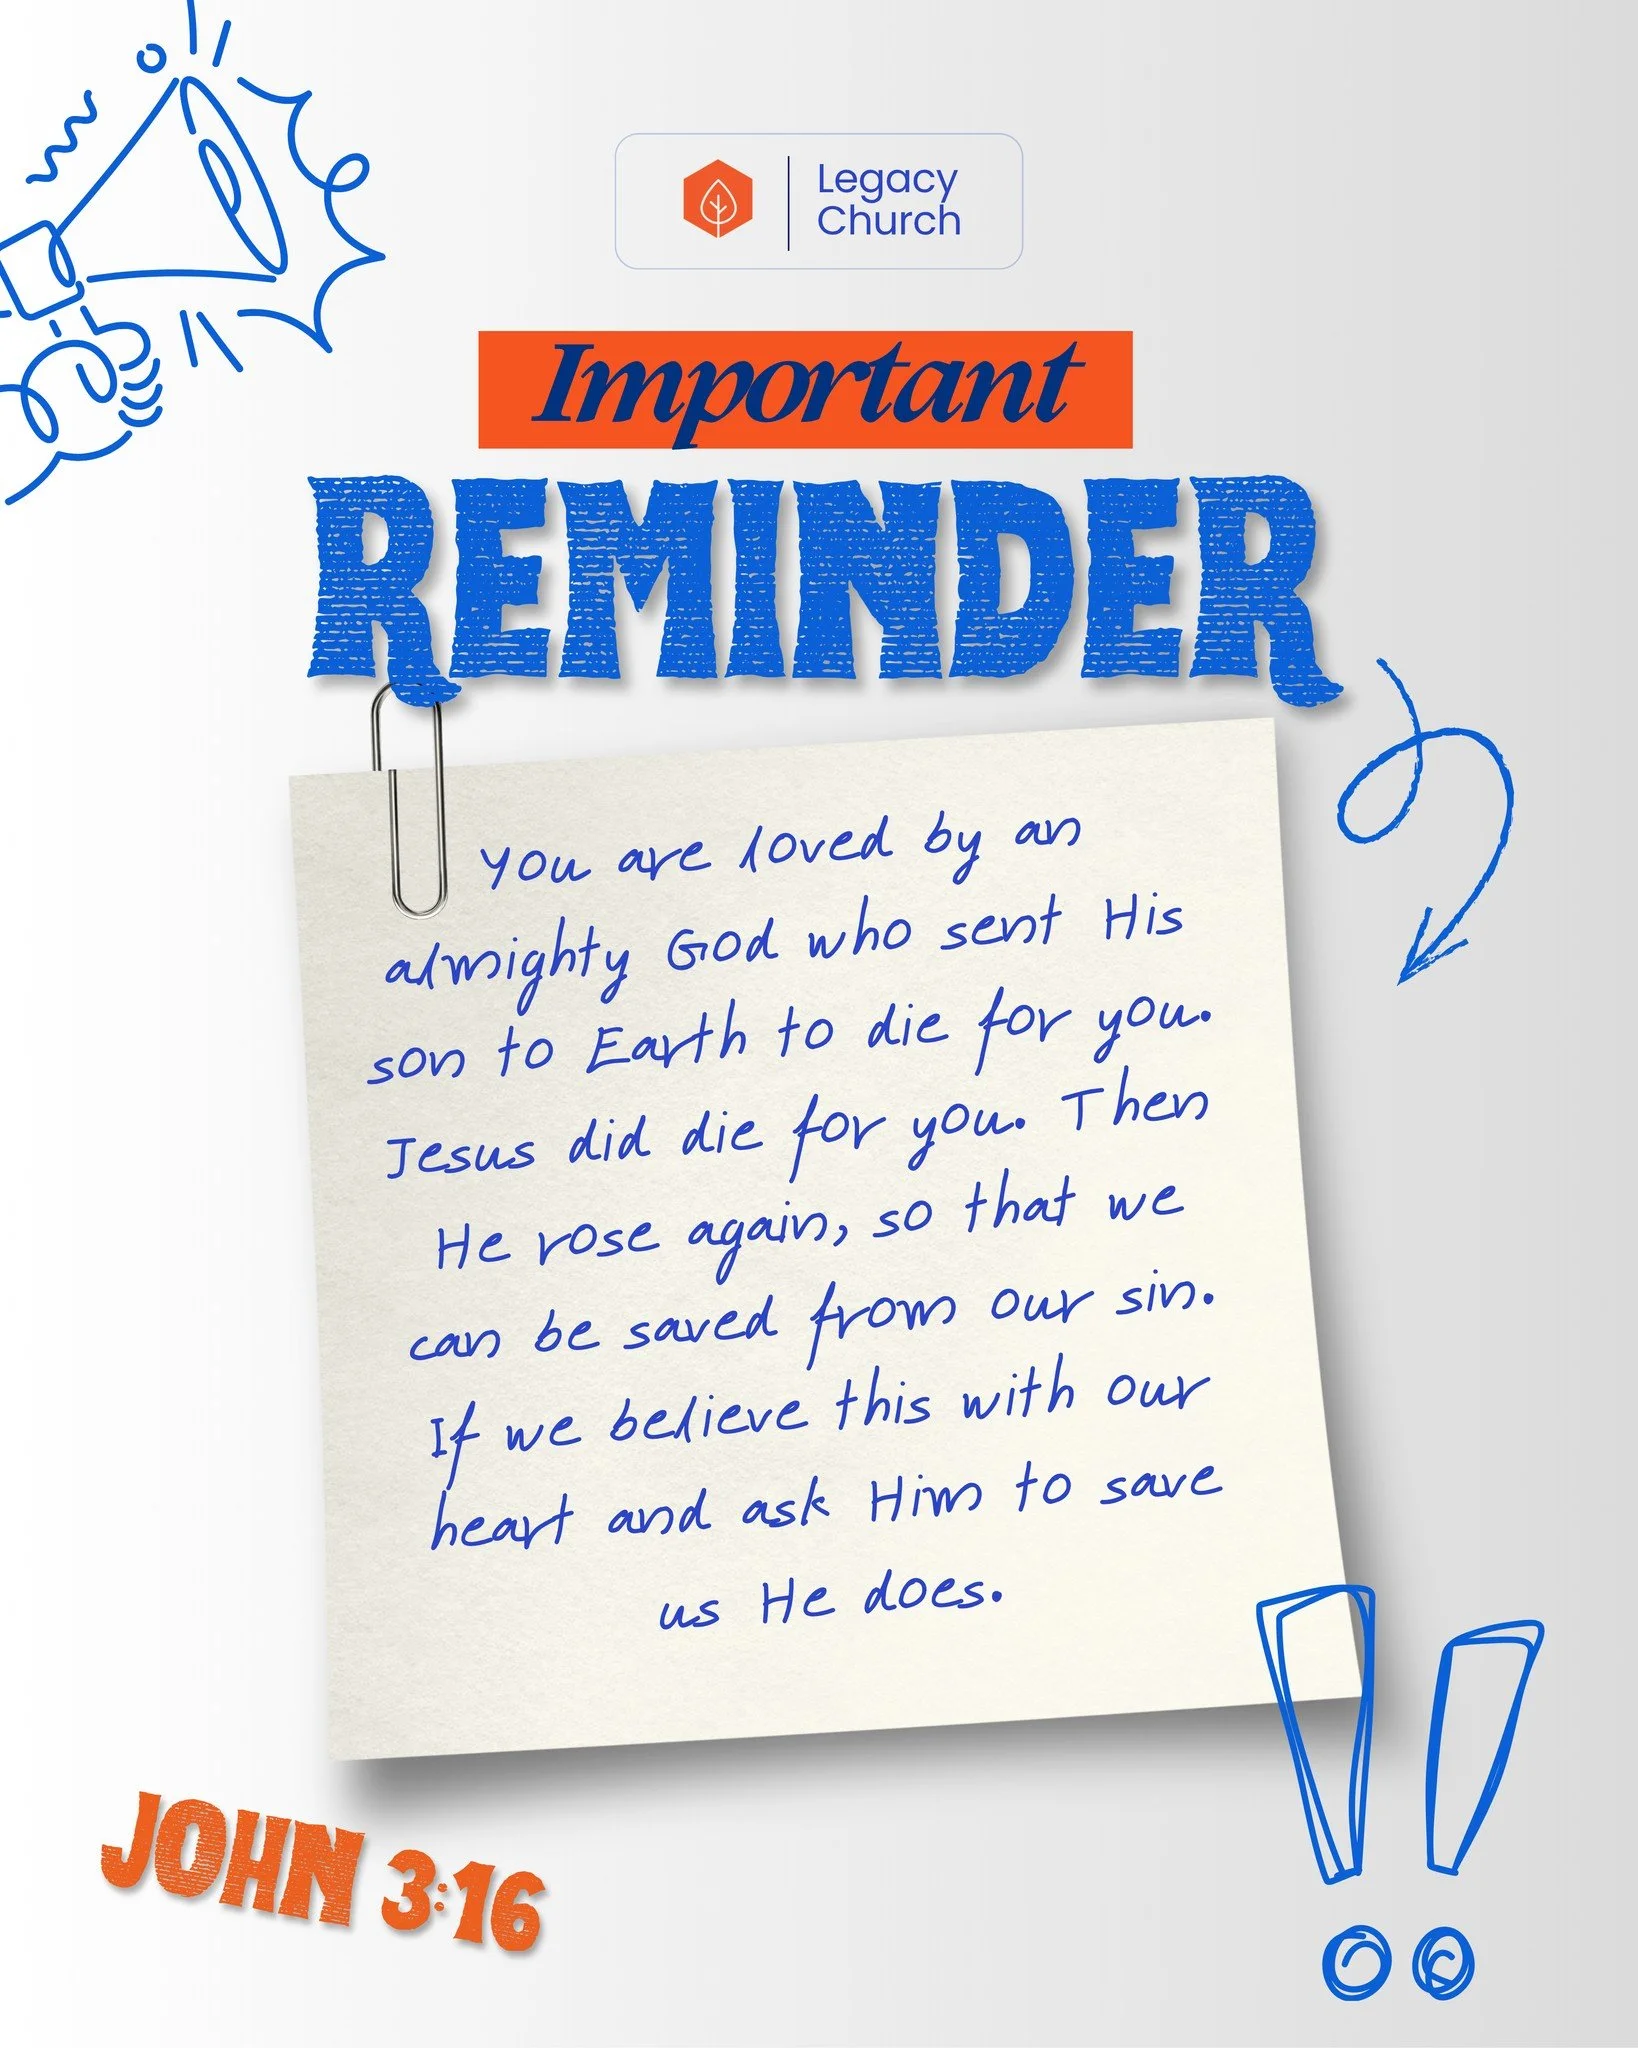 Legacy
Church
Important
REMINDER
You are loved by an
almighty God who sent His
son to Earth to die for you.
Jesus did die for you. Then
He rose again, so that we
can be saved from our sin.
If we believe this with our
heart and ask Him to save
us He does.
JOHN 3:16